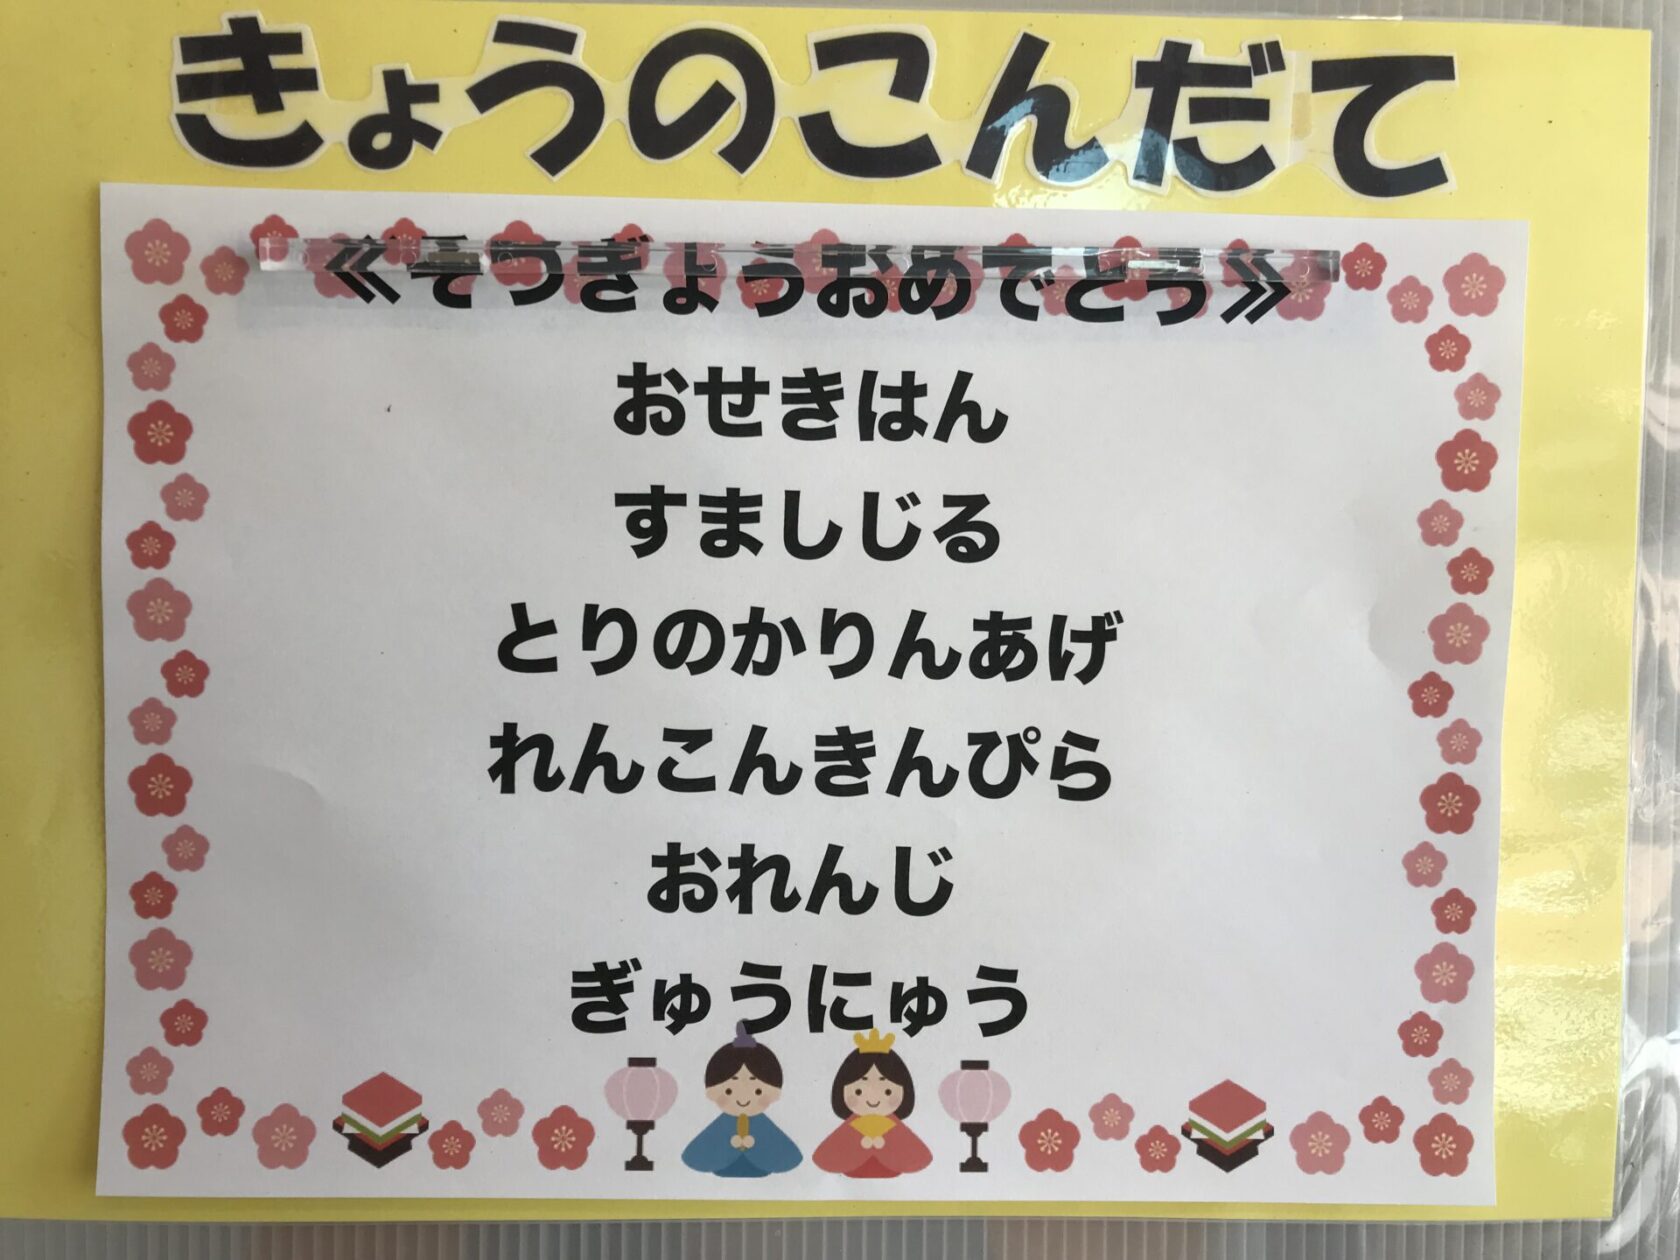 きょうのこんだて
≪そつぎょうおめでとう≫
おせきはん
すましじる
とりのかりんあげ
れんこんきんぴら
おれんじ
ぎゅうにゅう